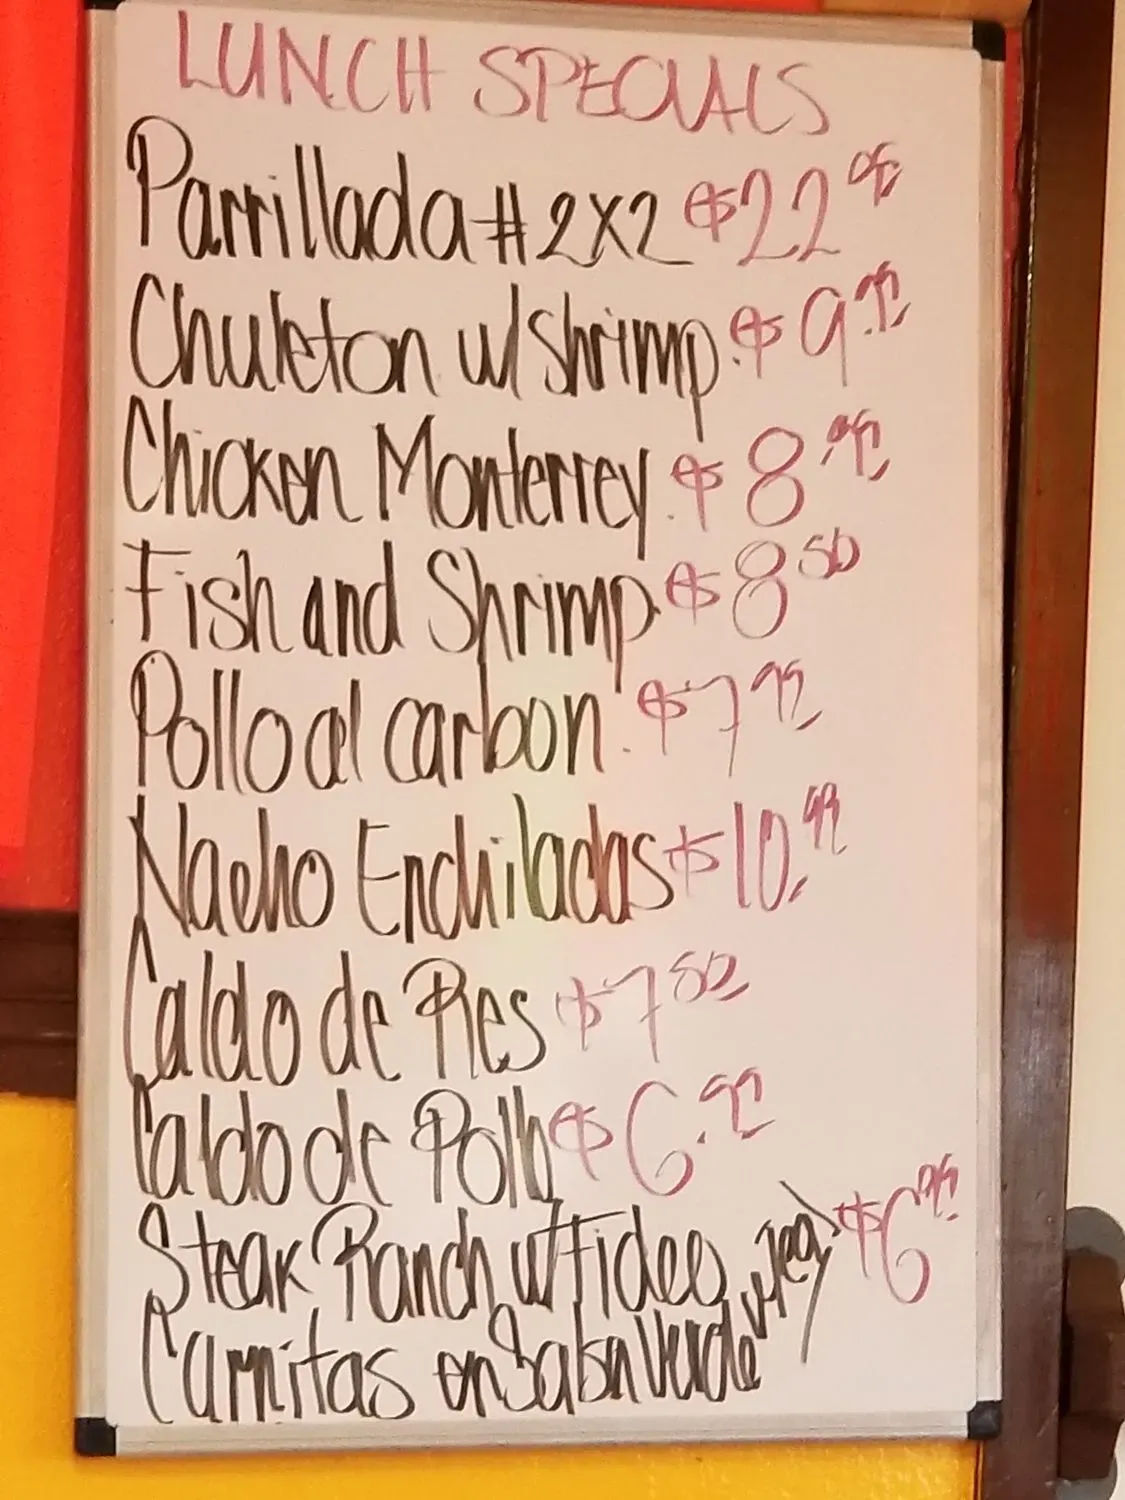 LUNCH SPECIALS
Parrillada #2x2 $22
Chuleton w/shrimp. $9.99
Chicken Monterrey. $8.99
Fish and Shrimp. $8 50
Pollo al carbon. $7 99
Nacho Enchiladas $10.99
Caldo de Res $7 50
Caldo de Pollo $6.99
Steak Ranch w/Fideo $6 99
Carnitas en Salsa Verde